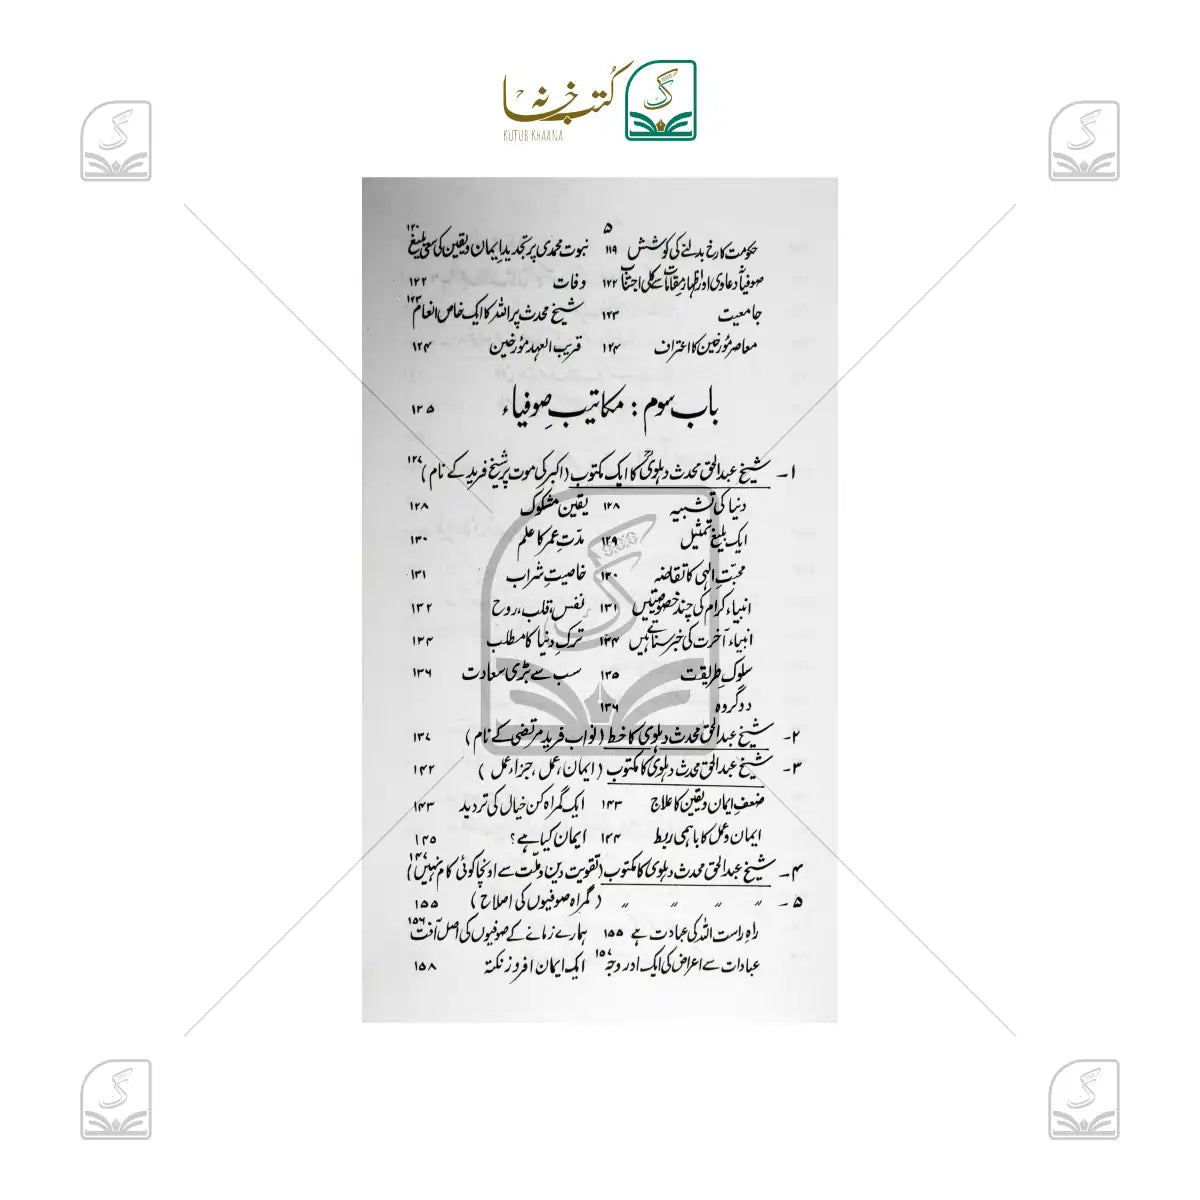 کتب خانہ
KUTUB KHAANA
۵
حکومت کا رخ بدلنے کی کوشش ۱۱۹ نبوت محمدی پر تجدید ایمان و یقین کی سعی بلیغ ۱۲۰
صوفیانہ دعاوی اور اظہار مقامات سے کلی اجتناب ۱۲۲ وفات ۱۲۲
جامعیت ۱۲۳ شیخ محدث پر اللہ کا ایک خاص انعام ۱۲۳
معاصر مؤرخین کا اعتراف ۱۲۴ قریب العہد مؤرخین ۱۲۴
باب سوم : مکاتیبِ صوفیاء ۱۲۵
۱۔ شیخ عبدالحق محدث دہلویؒ کا ایک مکتوب (اکبر کی موت پر شیخ فرید کے نام) ۱۲۷
دنیا کی تشبیہ ۱۲۸ یقین مشکوک ۱۲۸
ایک بلیغ تمثیل ۱۲۹ مدّتِ عمر کا علم ۱۳۰
محبّتِ الٰہی کا تقاضہ ۱۳۰ خاصیتِ شراب ۱۳۱
انبیاء کرام کی چند خصوصیتیں ۱۳۱ نفس، قلب، روح ۱۳۲
انبیاء آخرت کی خبر سناتے ہیں ۱۳۴ ترکِ دنیا کا مطلب ۱۳۴
سلوکِ طریقت ۱۳۵ سب سے بڑی سعادت ۱۳۶
دو گروہ ۱۳۶
۲۔ شیخ عبدالحق محدث دہلوی کا خط (نواب فرید مرتضیٰ کے نام) ۱۳۷
۳۔ شیخ عبدالحق محدث دہلوی کا مکتوب (ایمان، عمل، جزاء عمل) ۱۴۲
ضعفِ ایمان و یقین کا علاج ۱۴۳ ایک گمراہ کن خیال کی تردید ۱۴۳
ایمان و عمل کا باہمی ربط ۱۴۴ ایمان کیا ہے؟ ۱۴۵
۴۔ شیخ عبدالحق محدث دہلوی کا مکتوب (تقویت دین و ملّت سے اونچا کوئی کام نہیں) ۱۴۷
۵۔ " " " " (گمراہ صوفیوں کی اصلاح) ۱۵۵
راہِ راست اللہ کی عبادت ہے ۱۵۵ ہمارے زمانے کے صوفیوں کی اصل آفت ۱۵۶
عبادات سے اعراض کی ایک اور وجہ ۱۵۷ ایک ایمان افروز نکتہ ۱۵۸